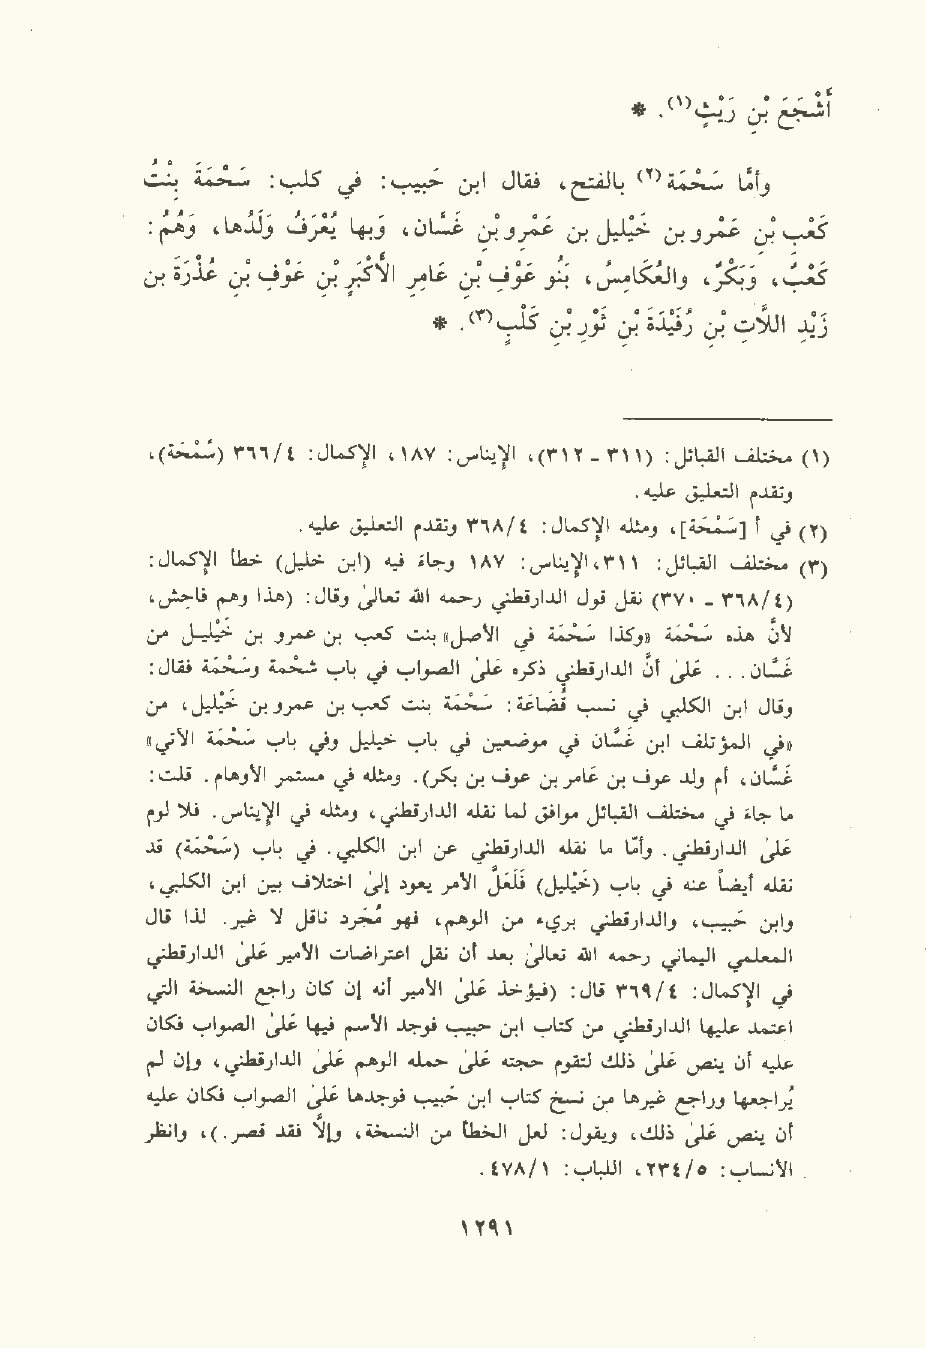 أَشْجَعَ بْنِ رَيْثٍ(١). *
وأمَّا سَحْمَة(٢) بالفتح، فقال ابن حَبيب: في كلب: سَحْمَةَ بِنْتُ
كَعْبِ بْنِ عَمْرِو بن خَليلِ بن عَمْرِو بْنِ غَسَّان، وَبها يُعْرَفُ وَلَدُها، وَهُمُ:
كَعْبٌ، وَبَكْرٌ، والعُكَامِسُ، بَنُو عَوْفِ بْنِ عامِرِ الأَكْبَرِ بْنِ عَوْفِ بْنِ عُذْرَةَ بن
زَيْدِ اللَّاتِ بْنِ رُفَيْدَةَ بْنِ ثَوْرِ بْنِ كَلْبٍ(٣). *
(١) مختلف القبائل: (٣١١ - ٣١٢)، الإيناس: ١٨٧، الإكمال: ٣٦٦/٤ (شَمْخَة)،
وتقدم التعليق عليه.
(٢) في أ [شَمْخَة]، ومثله الإكمال: ٣٦٨/٤ وتقدم التعليق عليه.
(٣) مختلف القبائل: ٣١١، الإيناس: ١٨٧ وجاء فيه (ابن خليل) خطأ الإكمال:
(٣٦٨/٤ - ٣٧٠) نقل قول الدارقطني رحمه الله تعالىٰ وقال: (هذا وهم فاحش،
لأنّ هذه سَحْمَة «وكذا سَحْمَة في الأصل» بنت كعب بن عمرو بن خَليل من
غسان... علىٰ أن الدارقطني ذكره علىٰ الصواب في باب شَحْمَة وسَحْمَة فقال:
وقال ابن الكلبي في نسب قُضَاعَة: سَحْمَة بنت كعب بن عمرو بن خَليل، من
«في المؤتلف ابن غسان في موضعين في باب خليل وفي باب سَحْمَة الآتي»
غسَّان، أم ولد عوف بن عامر بن عوف بن بكر). ومثله في مستمر الأوهام. قلت:
ما جاء في مختلف القبائل موافق لما نقله الدارقطني، ومثله في الإيناس. فلا لوم
علىٰ الدارقطني. وأمّا ما نقله الدارقطني عن ابن الكلبي. في باب (سَحْمَة) قد
نقله أيضاً عنه في باب (خَليل) فَلَعَلَّ الأمر يعود إلىٰ اختلاف بين ابن الكلبي،
وابن حَبيب، والدارقطني بريء من الوهم، فهو مُجَرد ناقل لا غير. لذا قال
المعلمي اليماني رحمه الله تعالىٰ بعد أن نقل اعتراضات الأمير علىٰ الدارقطني
في الإكمال: ٣٦٩/٤ قال: (فيؤخذ علىٰ الأمير أنه إن كان راجع النسخة التي
اعتمد عليها الدارقطني من كتاب ابن حبيب فوجد الاسم فيها علىٰ الصواب فكان
عليه أن ينص علىٰ ذلك لتقوم حجته علىٰ حمله الوهم علىٰ الدارقطني، وإن لم
يُراجعها وراجع غيرها من نسخ كتاب ابن حَبيب فوجدها علىٰ الصواب فكان عليه
أن ينص علىٰ ذلك، ويقول: لعل الخطأ من النسخة، وإلاَّ فقد قصر.)، وانظر
الأنساب: ٢٣٤/٥، اللباب: ٤٧٨/١.
١٢٩١